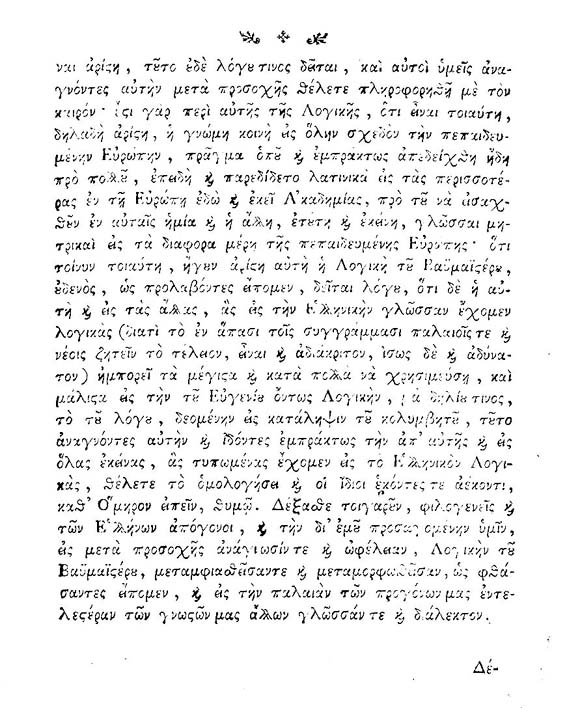 ναι ἀρίϛη, τȣ͂το ȣ̓δὲ λόγȣ τινος δεῖται, καὶ αὐτοὶ ὑμεῖς ἀνα-
γνόντες αὐτὴν μετὰ προσοχῆς θέλετε πληροφορηθῇ μὲ τὸν
καιρόν· ὅτι γὰρ περὶ αὐτῆς τῆς Λογικῆς, ὅτι εἶναι τοιαύτη,
δηλαδὴ ἀρίϛη, ἡ γνώμη κοινὴ εἰς ὅλην σχεδὸν τὴν πεπαιδευ-
μένην Εὐρώπην, πρᾶγμα ὁπȣ͂ ϗ ἐμπράκτως ἀπεδείχθη ἤδη
πρὸ πολλȣ͂, ἐπειδὴ ϗ παρεδίδετο λατινικὰ εἰς τὰς περισσοτέ-
ρας ἐν τῇ Εὐρώπῃ ἐδὼ ϗ ἐκεῖ Ἀκαδημίας, πρὸ τȣ͂ νὰ εἰσαχ-
θῶσιν ἐν αὐταῖς ἡ μία ϗ ἡ ἄλλη, ἐτȣ́τη ϗ ἐκείνη, γλῶσσαι μη-
τρικαὶ εἰς τὰ διάφορα μέρη τῆς πεπαιδευμένης Εὐρώπης· ὅτι
τοίνυν τοιαύτη, ἤγȣν ἀρίϛη αὐτὴ ἡ Λογικὴ τȣ͂ Βαϋμαϊϛέρȣ,
ȣ̓δενὸς, ὡς προλαβόντες εἴπομεν, δεῖται λόγȣ, ὅτι δὲ ἡ αὐ-
τὴ ϗ εἰς τὰς ἄλλας, ἃς εἰς τὴν Ἑλληνικὴν γλῶσσαν ἔχομεν
λογικὰς (διατὶ τὸ ἐν ἅπασι τοῖς συγγράμμασι παλαιοῖς τε ϗ
νέοις ζητεῖν τὸ τέλειον, εἶναι ϗ ἀδιάκριτον, ἴσως δὲ ϗ ἀδύνα-
τον) ἠμπορεῖ τὰ μέγιϛα ϗ κατὰ πολλὰ νὰ χρησιμεύσῃ, καὶ
μάλιϛα εἰς τὴν τȣ͂ Εὐγενίȣ ὄντως Λογικὴν, μὰ δηλίȣ τινος,
τὸ τȣ͂ λόγȣ, δεομένην εἰς κατάληψιν τȣ͂ κολυμβητȣ͂, τȣ͂το
ἀναγνόντες αὐτὴν ϗ ἰδόντες ἐμπράκτως τὴν ἀπ' αὐτῆς ϗ εἰς
ὅλας ἐκείνας, ἃς τυπωμένας ἔχομεν εἰς τὸ Ἑλληνικὸν Λογι-
κὰς, θέλετε τὸ ὁμολογήσει ϗ οἱ ἴδιοι ἑκόντες τε ἀέκοντι,
καθ' Ὅμηρον εἰπεῖν, θυμῷ. Δέξασθε τοιγαρȣ͂ν, φιλογενεῖς ϗ
τῶν Ἑλλήνων ἀπόγονοι, ϗ τὴν δι' ἐμȣ͂ προσαγομένην ὑμῖν,
εἰς μετὰ προσοχῆς ἀνάγνωσίν τε ϗ ὠφέλειαν, Λογικὴν τȣ͂
Βαϋμαϊϛέρȣ, μεταμφιασθεῖσαν τε ϗ μεταμορφωθεῖσαν, ὡς φθά-
σαντες εἴπομεν, ϗ εἰς τὴν παλαιὰν τῶν προγόνων μας ἐντε-
λεϛέραν τῶν γνωϛῶν μας ἄλλων γλῶσσάν τε ϗ διάλεκτον.
Δέ-